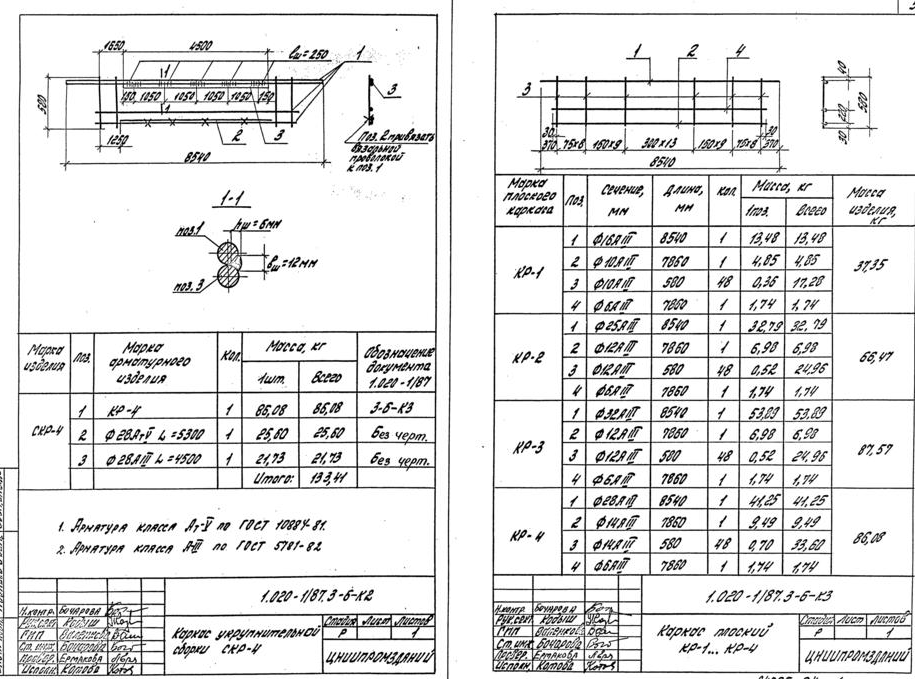 1650
4500
ℓш=250
1
1
150 1050 1050 1050 1050 150
1
3
520
2
3
1250
8540
Поз. 2 привязать
вязальной
проволокой
к поз. 1
1-1
hш = 6мм
поз.1
bш=12мм
поз. 3
Марка изделия | Поз. | Марка арматурного изделия | Кол. | Масса, кг | Обозначение документа 1.020-1/87
1шт. | Всего
СКР-4
1 | КР-4 | 1 | 86,08 | 86,08 | 3-6-К3
2 | Ф28АтV L=5300 | 1 | 25,60 | 25,60 | Без черт.
3 | Ф28АIII L=4500 | 1 | 21,73 | 21,73 | Без черт.
Итого: 133,41
1. Арматура класса Ат-V по ГОСТ 10884-81.
2. Арматура класса А-III по ГОСТ 5781-82
1.020-1/87.3-6-К2
Н.контр. Бочарова
Рук.сект. Кодыш
ГИП
Ст. инж. Бочарова
Провер. Ермакова
Исполн. Котова
Каркас укрупнительной
сборки СКР-4
Стадия Лист Листов
Р 1
ЦНИИПРОМЗДАНИЙ
1 2 4
3
40
220
520
30
30
370 75х8 150х9 300х13 150х9 75х8 370
30
8540
Марка плоского каркаса | Поз. | Сечение, мм | Длина, мм | Кол. | Масса, кг | Масса изделия, кг
1поз. | Всего
КР-1
1 | Ф16АIII | 8540 | 1 | 13,48 | 13,48
2 | Ф10АIII | 7860 | 1 | 4,85 | 4,85
3 | Ф10АIII | 580 | 48 | 0,36 | 17,28
4 | Ф6АIII | 7860 | 1 | 1,74 | 1,74
37,35
КР-2
1 | Ф25АIII | 8540 | 1 | 32,79 | 32,79
2 | Ф12АIII | 7860 | 1 | 6,98 | 6,98
3 | Ф12АIII | 580 | 48 | 0,52 | 24,96
4 | Ф6АIII | 7860 | 1 | 1,74 | 1,74
66,47
КР-3
1 | Ф32АIII | 8540 | 1 | 53,89 | 53,89
2 | Ф12АIII | 7860 | 1 | 6,98 | 6,98
3 | Ф12АIII | 580 | 48 | 0,52 | 24,96
4 | Ф6АIII | 7860 | 1 | 1,74 | 1,74
87,57
КР-4
1 | Ф28АIII | 8540 | 1 | 41,25 | 41,25
2 | Ф14АIII | 7860 | 1 | 9,49 | 9,49
3 | Ф14АIII | 580 | 48 | 0,70 | 33,60
4 | Ф6АIII | 7860 | 1 | 1,74 | 1,74
86,08
1.020-1/87.3-6-К3
Н.контр. Бочарова
Рук.сект. Кодыш
ГИП
Ст. инж. Бочарова
Провер. Ермакова
Исполн. Котова
Каркас плоский
КР-1... КР-4
Стадия Лист Листов
Р 1
ЦНИИПРОМЗДАНИЙ